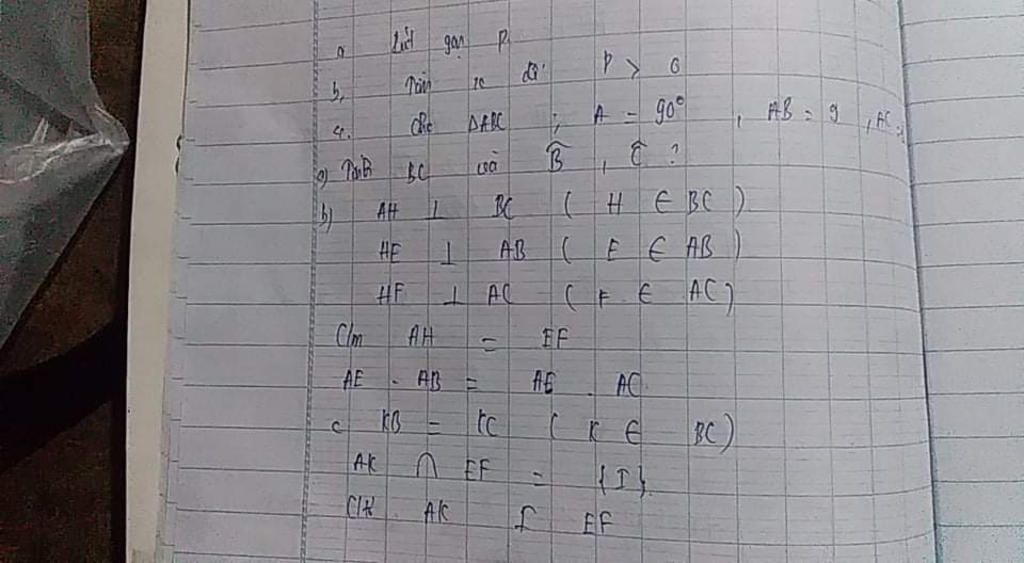 a Rút gọn P
b, Tìm x để P > 0
4. Cho ΔABC ; A = 90° , AB = 9 , AC =
a) Tính BC và B̂ , Ĉ ?
b) AH ⊥ BC ( H ∈ BC )
HE ⊥ AB ( E ∈ AB )
HF ⊥ AC ( F ∈ AC )
C/m AH = EF
AE . AB = AE . AC
c KB = KC ( K ∈ BC )
AK ∩ EF = { I }
AK EF